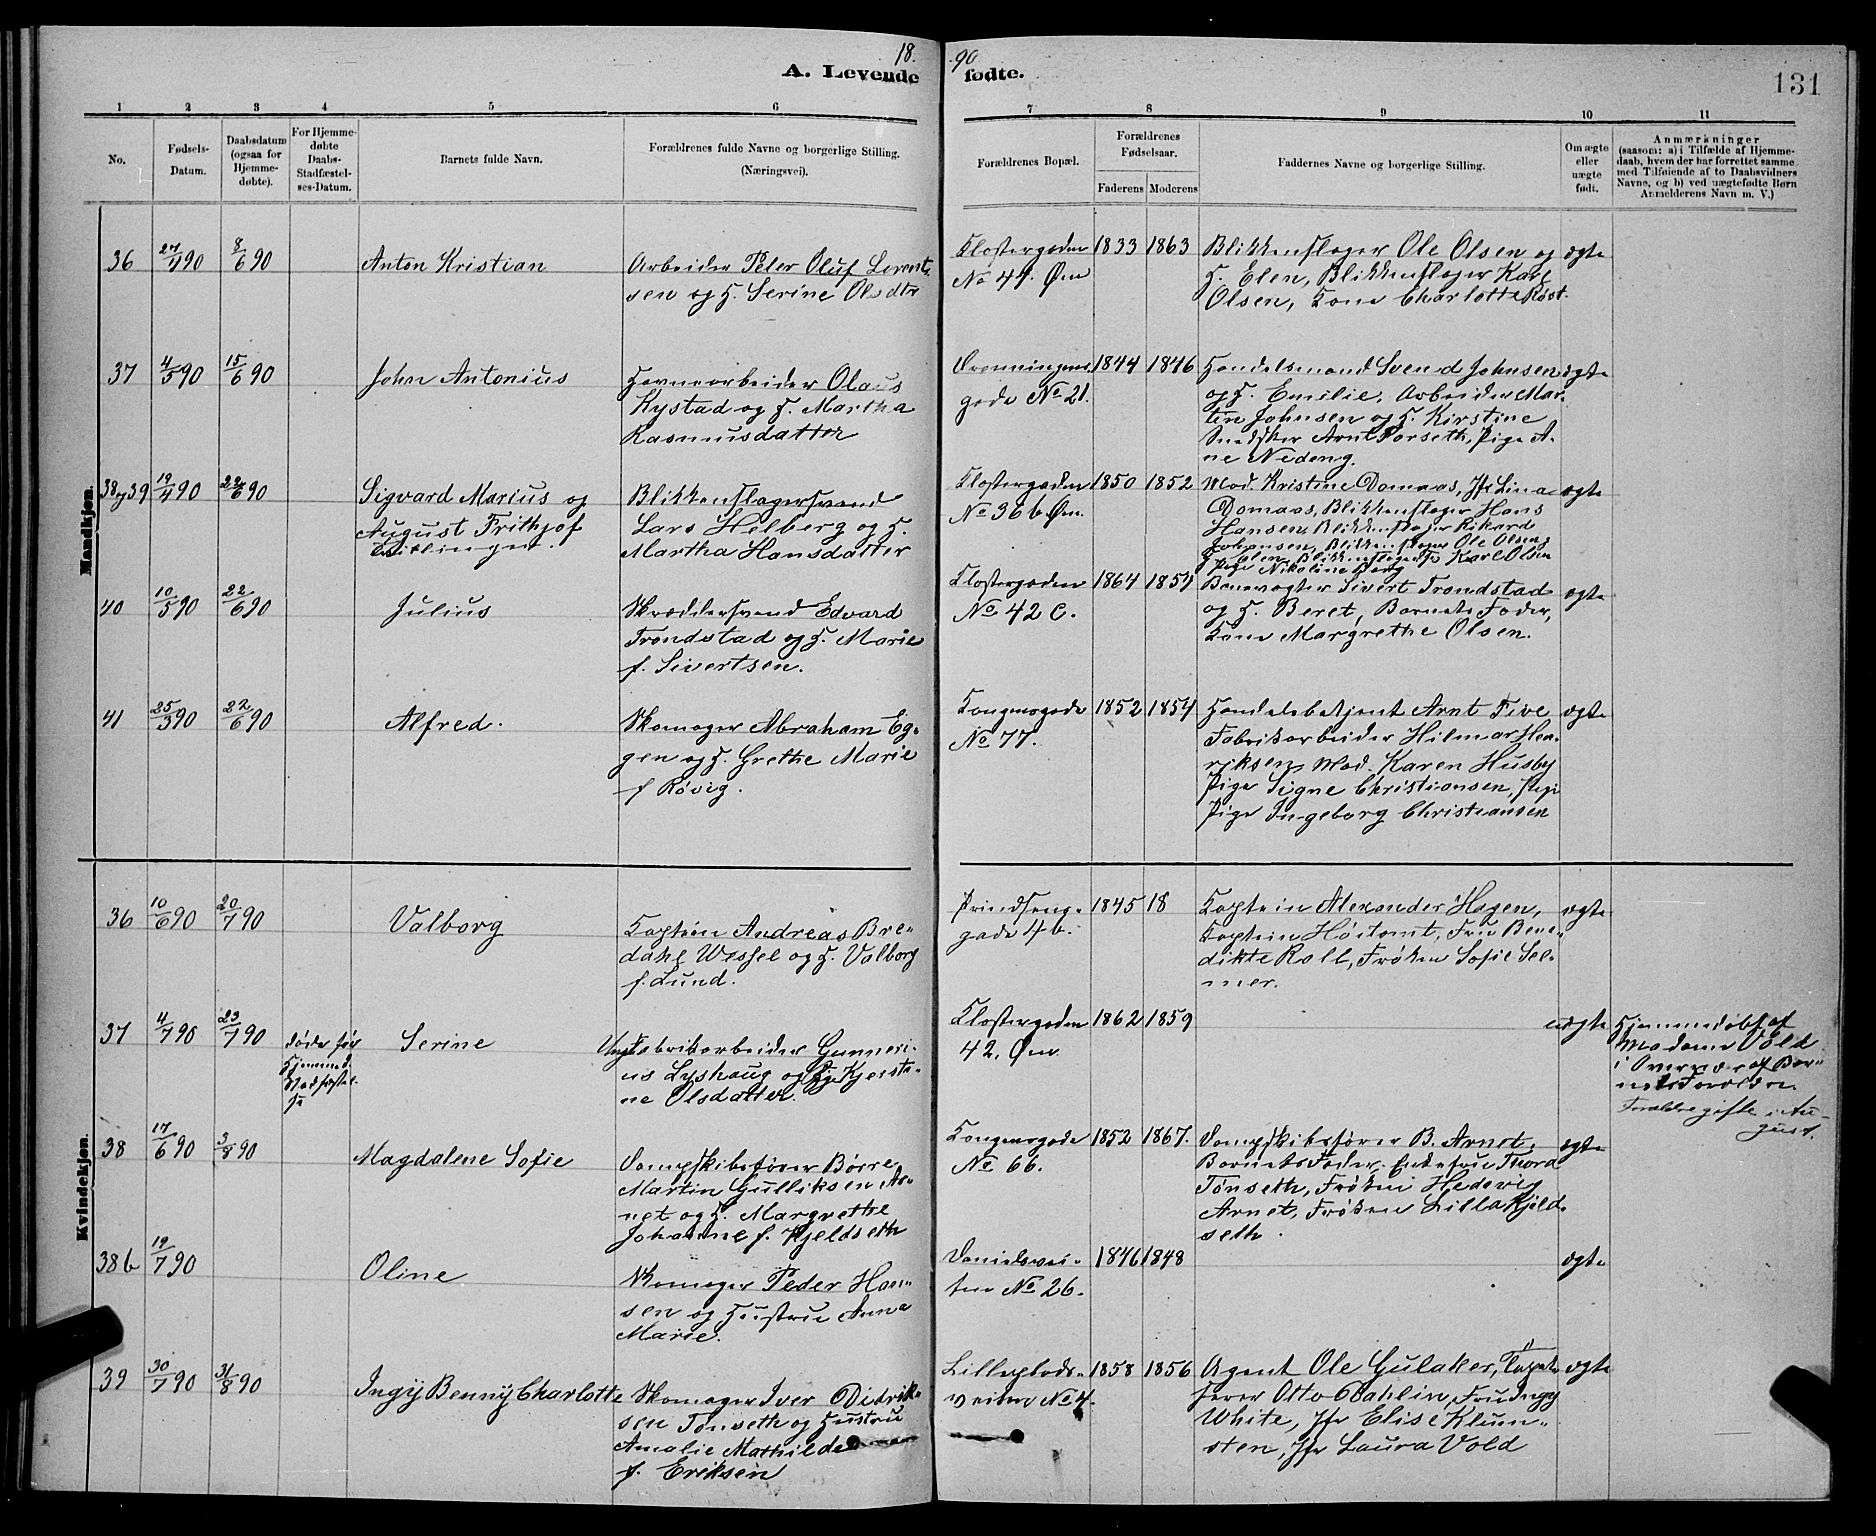 18 90
A. Levende fødte.
131
1 2 3 4 5 6 7 8 9 10 11
No.
Fødsels-
Datum.
Daabsdatum
(ogsaa for
Hjemme-
døbte).
For Hjemme-
døbte
Daabs-
Stadfæstel-
ses-Datum.
Barnets fulde Navn.
Forældrenes fulde Navne og borgerlige Stilling.
(Næringsvei).
Forældrenes Bopæl.
Forældrenes
Fødselsaar.
Faderens Moderens
Faddernes Navne og borgerlige Stilling.
Om ægte
eller
uægte
født.
Anmærkninger
(saasom: a) i Tilfælde af Hjemme-
daab, hvem der har forrettet samme
med Tilføiende af to Daabsvidners
Navne, og b) ved uægtefødte Børn
Anmelderens Navn m. V.)
Mandkjøn.
36 27/4 90 8/6 90 Anton Kristian
Arbeider Peter Oluf Lorent-
sen og H. Serine Olsdtr
Klostergaden
No 47. Øm
1833 1863
Blikkenslager Ole Olsen og
H. Elen, Blikkenslager Karl
Olsen, Kone Charlotte Røst.
ægte
37 4/5 90 15/6 90 John Antonius
Havnearbeider Olaus
Kystad og H. Martha
Rasmusdatter
Dronningens
gade No 21.
1844 1846
Handelsmand Svend Johnsen
og H. Emilie, Arbeider Mar-
tin Johnsen og H. Kirstine
Snedker Arnt Porseth, Pige A-
ne Nedeng.
ægte
38 og 39 19/4 90 22/6 90 Sigvard Marius og
August Frithjof
Tvillinger.
Blikkenslagersvend
Lars Helberg og H.
Martha Hansdatter
Klostergaden
No 36 b Øm.
1850 1852
Mad. Kristine Domaas, Jfr Lina
Domaas, Blikkenslager Hans
Hansen, Blikkenslager Rikard
Johansen, Blikkenslager Ole Olsen,
H. Elen, Blikkenslager Karl Olsen
Pige Nikoline Berg
ægte
40 10/5 90 22/6 90 Julius
Skræddersvend Edvard
Trondstad og H. Marie
f. Sivertsen.
Klostergaden
No 42 C.
1864 1857
Banevogter Sivert Trondstad
og H. Beret, Barnets Fader,
Kone Margrethe Olsen.
ægte
41 25/3 90 22/6 90 Alfred.
Skomager Abraham Eg-
gen og H. Grethe Marie
f Røvig.
Kongensgade
No 77.
1852 1854
Handelsbetjent Arnt Five
Fabrikarbeider Hilmar Hen-
riksen, Mad. Karen Husby
Pige Signe Christiansen,
Pige Ingeborg Christiansen
ægte
Kvindekjøn.
36 10/6 90 20/7 90 Valborg
Kaptein Andreas Bre-
dahl Wessel og H. Valborg
f. Lund.
Prindsens-
gade 4b.
1845 18
Kaptein Alexander Hagen,
Kaptein Høstomt, Frue Bene-
dikte Roll, Frøken Sofie Sel-
mer.
ægte
37 4/7 90 23/7 90 døde før
Hjemmed.
Stadfæstel-
se
Serine
Ungk. Fabrikarbeider Gunneri-
us Lyshaug og Pige Kjersti-
ne Olsdatter.
Klostergaden
42. Øm
1862 1859
uægte
Hjemmedøbt af
Madame Vold
i Overvær af Bar-
nets Forældre.
Forældre gifte i Au-
gust.
38 17/6 90 3/8 90 Magdalene Sofie
Dampskibsfører Børre
Martin Gulliksen Ar-
net og H. Margrethe
Johanne f. Kjeldseth
Kongensgade
No 66.
1852 1867.
Dampskibsfører B. Arnet,
Barnets Fader, Enkefrue Thora
Tønseth, Frøken Hedevig
Arnet, Frøken Lilla Kjeld-
seth.
ægte
38b 19/7 90 Oline
Skomager Peder Han-
sen og Hustru Anna
Marie.
Danielsvei-
ten No 26.
1846 1848
ægte
39 30/7 90 31/8 90 Ingy Benny Charlotte
Skomager Iver Didrik-
sen Tønseth og Hustru
Amalie Mathilde
f. Eriksen
Lilleplads-
veiten No 4.
1858 1856
Agent Ole Gulaker, Tapet-
serer Otto Dahlin, Fru Ingy
White, Jfr Elise Klum-
sten, Jfr Laura Vold
ægte